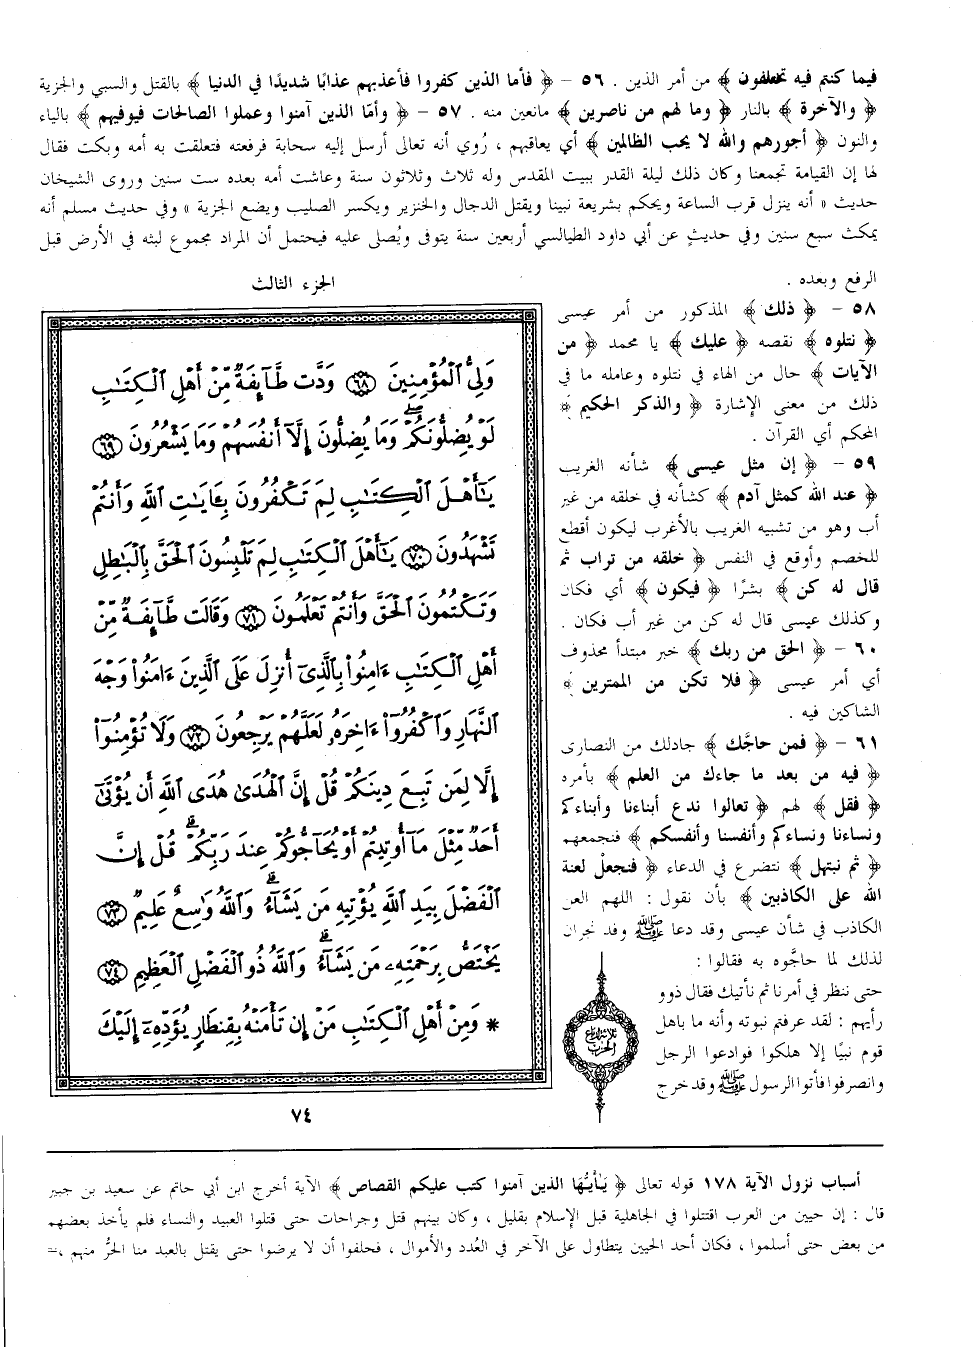 فيما كنتم فيه تختلفون ﴾ من أمر الدين . ٥٦ – ﴿ فأما الذين كفروا فأعذبهم عذابًا شديدًا في الدنيا ﴾ بالقتل والسبي والجزية
﴿ والآخرة ﴾ بالنار ﴿ وما لهم من ناصرين ﴾ مانعين منه . ٥٧ – ﴿ وأمّا الذين آمنوا وعملوا الصالحات فيوفيهم ﴾ بالياء
والنون ﴿ أجورهم والله لا يحب الظالمين ﴾ أي يعاقبهم ، رُوي أنه تعالى أرسل إليه سحابة فرفعته فتعلقت به أمه وبكت فقال
لها إن القيامة تجمعنا وكان ذلك ليلة القدر ببيت المقدس وله ثلاث وثلاثون سنة وعاشت أمه بعده ست سنين وروى الشيخان
حديث « أنه ينزل قرب الساعة ويحكم بشريعة نبينا ويقتل الدجال والخنزير ويكسر الصليب ويضع الجزية » وفي حديث مسلم أنه
يمكث سبع سنين وفي حديثٍ عن أبي داود الطيالسي أربعين سنة يتوفى ويُصلى عليه فيحتمل أن المراد مجموع لبثه في الأرض قبل
الرفع وبعده .
٥٨ – ﴿ ذلك ﴾ المذكور من أمر عيسى
﴿ نتلوه ﴾ نقصه ﴿ عليك ﴾ يا محمد ﴿ من
الآيات ﴾ حال من الهاء في نتلوه وعامله ما في
ذلك من معنى الإشارة ﴿ والذكر الحكيم ﴾
المحكم أي القرآن .
٥٩ – ﴿ إن مثل عيسى ﴾ شأنه الغريب
﴿ عند الله كمثل آدم ﴾ كشأنه في خلقه من غير
أب وهو من تشبيه الغريب بالأغرب ليكون أقطع
للخصم وأوقع في النفس ﴿ خلقه من تراب ثم
قال له كن ﴾ بشرًا ﴿ فيكون ﴾ أي فكان
وكذلك عيسى قال له كن من غير أب فكان .
٦٠ – ﴿ الحق من ربك ﴾ خبر مبتدأ محذوف
أي أمر عيسى ﴿ فلا تكن من الممترين ﴾
الشاكين فيه .
٦١ – ﴿ فمن حاجَّك ﴾ جادلك من النصارى
﴿ فيه من بعد ما جاءك من العلم ﴾ بأمره
﴿ فقل ﴾ لهم ﴿ تعالوا ندع أبناءنا وأبناءكم
ونساءنا ونساءكم وأنفسنا وأنفسكم ﴾ فنجمعهم
﴿ ثم نبتهل ﴾ نتضرع في الدعاء ﴿ فنجعلْ لعنة
الله على الكاذبين ﴾ بأن نقول : اللهم العن
الكاذب في شأن عيسى وقد دعا ﷺ وفد نجران
لذلك لما حاجَّوه به فقالوا :
حتى ننظر في أمرنا ثم نأتيك فقال ذوو
رأيهم : لقد عرفتم نبوته وأنه ما باهل
قوم نبيًا إلا هلكوا فوادعوا الرجل
وانصرفوا فأتوا الرسول ﷺ وقد خرج
الجزء الثالث
وَلِيُّ ٱلْمُؤْمِنِينَ ٦٨ وَدَّت طَّآئِفَةٌ مِّنْ أَهْلِ ٱلْكِتَٰبِ
لَوْ يُضِلُّونَكُمْ وَمَا يُضِلُّونَ إِلَّآ أَنفُسَهُمْ وَمَا يَشْعُرُونَ ٦٩
يَٰٓأَهْلَ ٱلْكِتَٰبِ لِمَ تَكْفُرُونَ بِـَٔايَٰتِ ٱللَّهِ وَأَنتُمْ
تَشْهَدُونَ ٧٠ يَٰٓأَهْلَ ٱلْكِتَٰبِ لِمَ تَلْبِسُونَ ٱلْحَقَّ بِٱلْبَٰطِلِ
وَتَكْتُمُونَ ٱلْحَقَّ وَأَنتُمْ تَعْلَمُونَ ٧١ وَقَالَت طَّآئِفَةٌ مِّنْ
أَهْلِ ٱلْكِتَٰبِ ءَامِنُوا۟ بِٱلَّذِىٓ أُنزِلَ عَلَى ٱلَّذِينَ ءَامَنُوا۟ وَجْهَ
ٱلنَّهَارِ وَٱكْفُرُوٓا۟ ءَاخِرَهُۥ لَعَلَّهُمْ يَرْجِعُونَ ٧٢ وَلَا تُؤْمِنُوٓا۟
إِلَّا لِمَن تَبِعَ دِينَكُمْ قُلْ إِنَّ ٱلْهُدَىٰ هُدَى ٱللَّهِ أَن يُؤْتَىٰٓ
أَحَدٌ مِّثْلَ مَآ أُوتِيتُمْ أَوْ يُحَآجُّوكُمْ عِندَ رَبِّكُمْ ۗ قُلْ إِنَّ
ٱلْفَضْلَ بِيَدِ ٱللَّهِ يُؤْتِيهِ مَن يَشَآءُ ۗ وَٱللَّهُ وَٰسِعٌ عَلِيمٌ ٧٣
يَخْتَصُّ بِرَحْمَتِهِۦ مَن يَشَآءُ ۗ وَٱللَّهُ ذُو ٱلْفَضْلِ ٱلْعَظِيمِ ٧٤
* وَمِنْ أَهْلِ ٱلْكِتَٰبِ مَنْ إِن تَأْمَنْهُ بِقِنطَارٍ يُؤَدِّهِۦٓ إِلَيْكَ
ثلاثة أرباع
الحزب
٧٤
أسباب نزول الآية ١٧٨ قوله تعالى ﴿ يَـٰأيـُّها الذين آمنوا كتب عليكم القصاص ﴾ الآية أخرج ابن أبي حاتم عن سعيد بن جبير
قال : إن حيين من العرب اقتتلوا في الجاهلية قبل الإسلام بقليل ، وكان بينهم قتل وجراحات حتى قتلوا العبيد والنساء فلم يأخذ بعضهم
من بعض حتى أسلموا ، فكان أحد الحيين يتطاول على الآخر في العُدد والأموال ، فحلفوا أن لا يرضوا حتى يقتل بالعبد منا الحرُّ منهم ،=